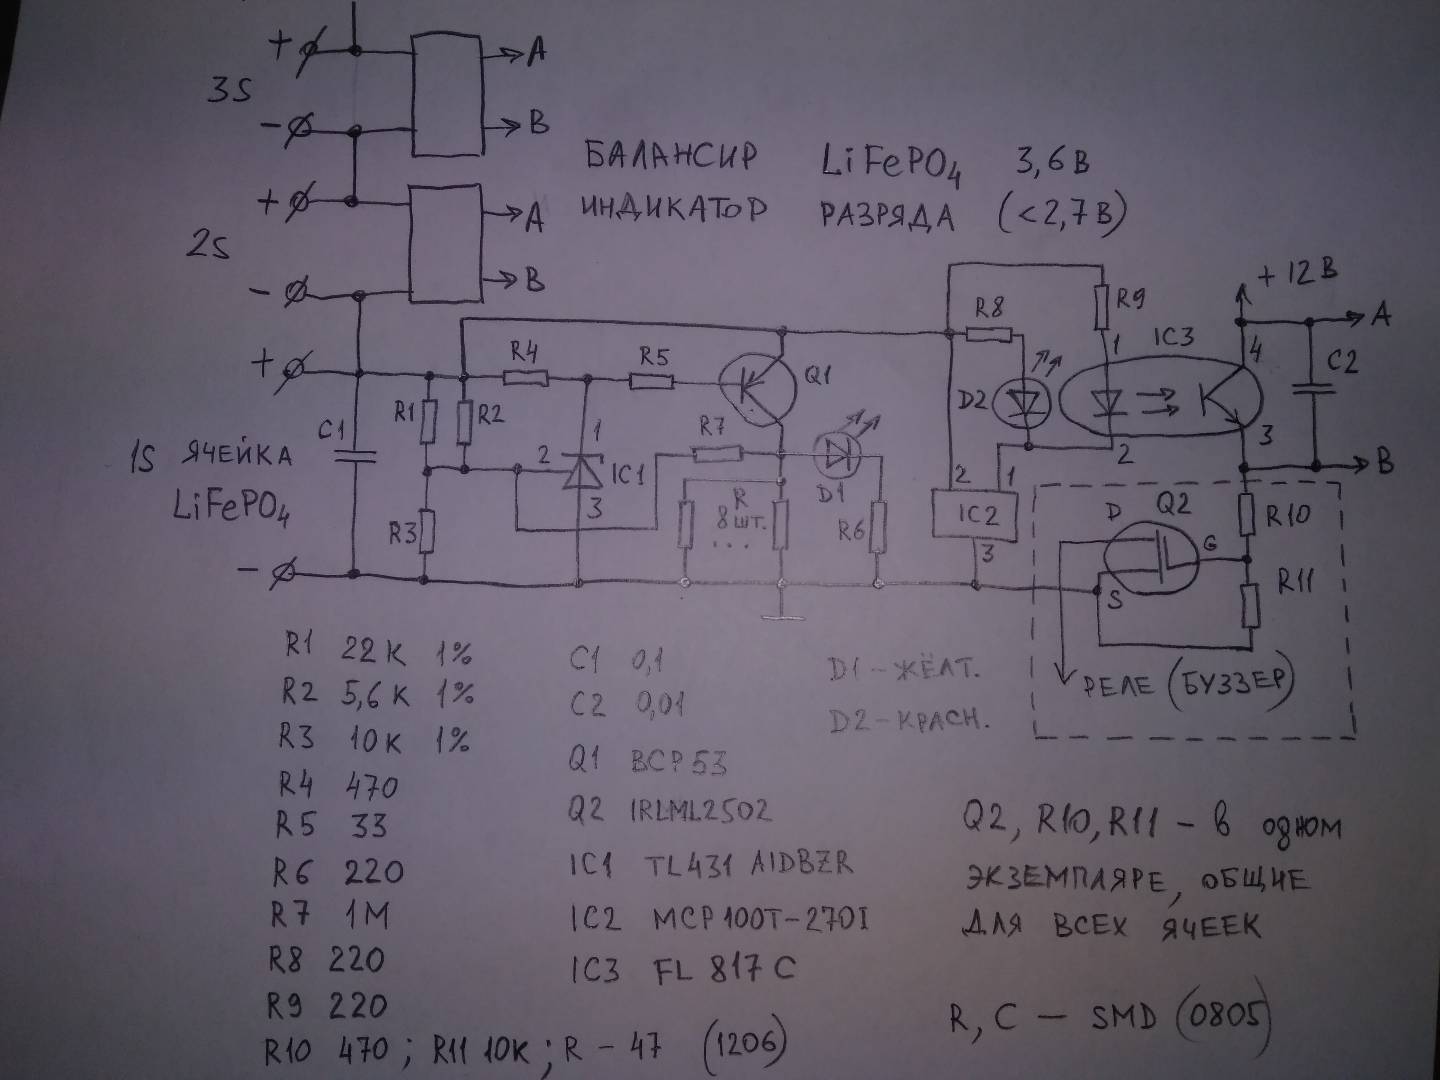 +
3S
-
A
B
+
2S
-
A
B
БАЛАНСИР LiFePO4 3,6В
ИНДИКАТОР РАЗРЯДА (<2,7В)
+
1S ЯЧЕЙКА
LiFePO4
-
C1
R1
R2
R3
R4
R5
1
2
3
IC1
Q1
R7
D1
R
8 шт.
...
R6
R8
D2
R9
1
2
IC3
4
3
+12В
A
C2
B
2
1
IC2
3
D
Q2
G
S
R10
R11
РЕЛЕ (БУЗЗЕР)
R1 22К 1%
R2 5,6К 1%
R3 10К 1%
R4 470
R5 33
R6 220
R7 1М
R8 220
R9 220
R10 470; R11 10К; R - 47 (1206)
C1 0,1
C2 0,01
Q1 BCP53
Q2 IRLML2502
IC1 TL431 AIDBZR
IC2 MCP100T-270I
IC3 FL 817C
D1 - ЖЁЛТ.
D2 - КРАСН.
Q2, R10, R11 - в одном
ЭКЗЕМПЛЯРЕ, ОБЩИЕ
ДЛЯ ВСЕХ ЯЧЕЕК
R, C — SMD (0805)